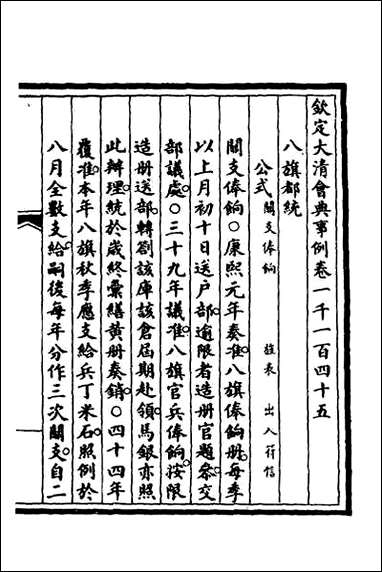 欽定大清會典事例卷一千一百四十五
八旗都統
公式 關支俸餉 旌表 出入符信
關支俸餉○康熙元年奏准八旗俸餉册每季
以上月初十日送户部逾限者造册官題參交
部議處○三十九年議准八旗官兵俸餉按限
造册送部轉劄該庫該倉屆期赴領馬銀亦照
此辦理統於歲終彙繕黄册奏銷○四十四年
覆准本年八旗秋季應支給兵丁米石照例於
八月全數支給嗣後每年分作三次關支自二